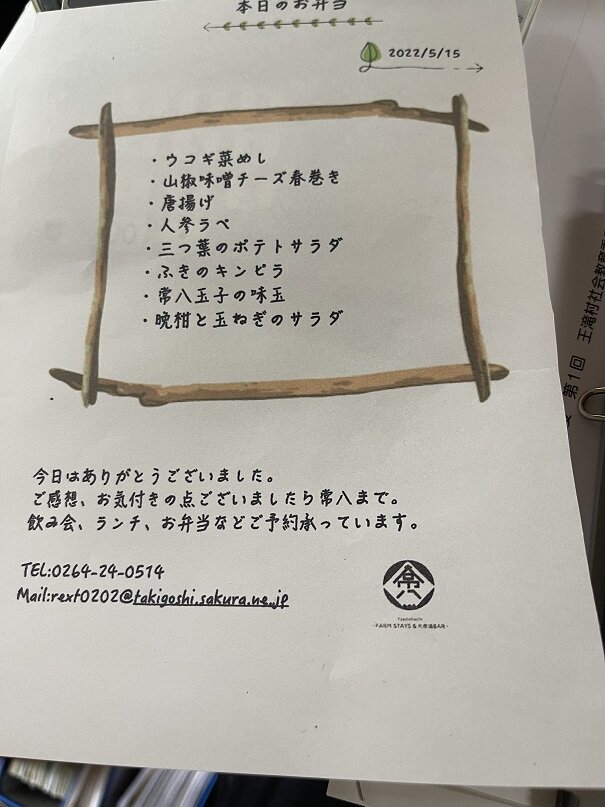 本日のお弁当
2022/5/15
・ウコギ菜めし
・山椒味噌チーズ春巻き
・唐揚げ
・人参ラペ
・三つ葉のポテトサラダ
・ふきのキンピラ
・常八玉子の味玉
・晩柑と玉ねぎのサラダ
今日はありがとうございました。
ご感想、お気付きの点ございましたら常八まで。
飲み会、ランチ、お弁当などご予約承っています。
TEL:0264-24-0514
Mail:rext0202@takigoshi.sakura.ne.jp
常八
Tsunehachi
-FARM STAYS &
BAR-
第1回 王滝村社会教育